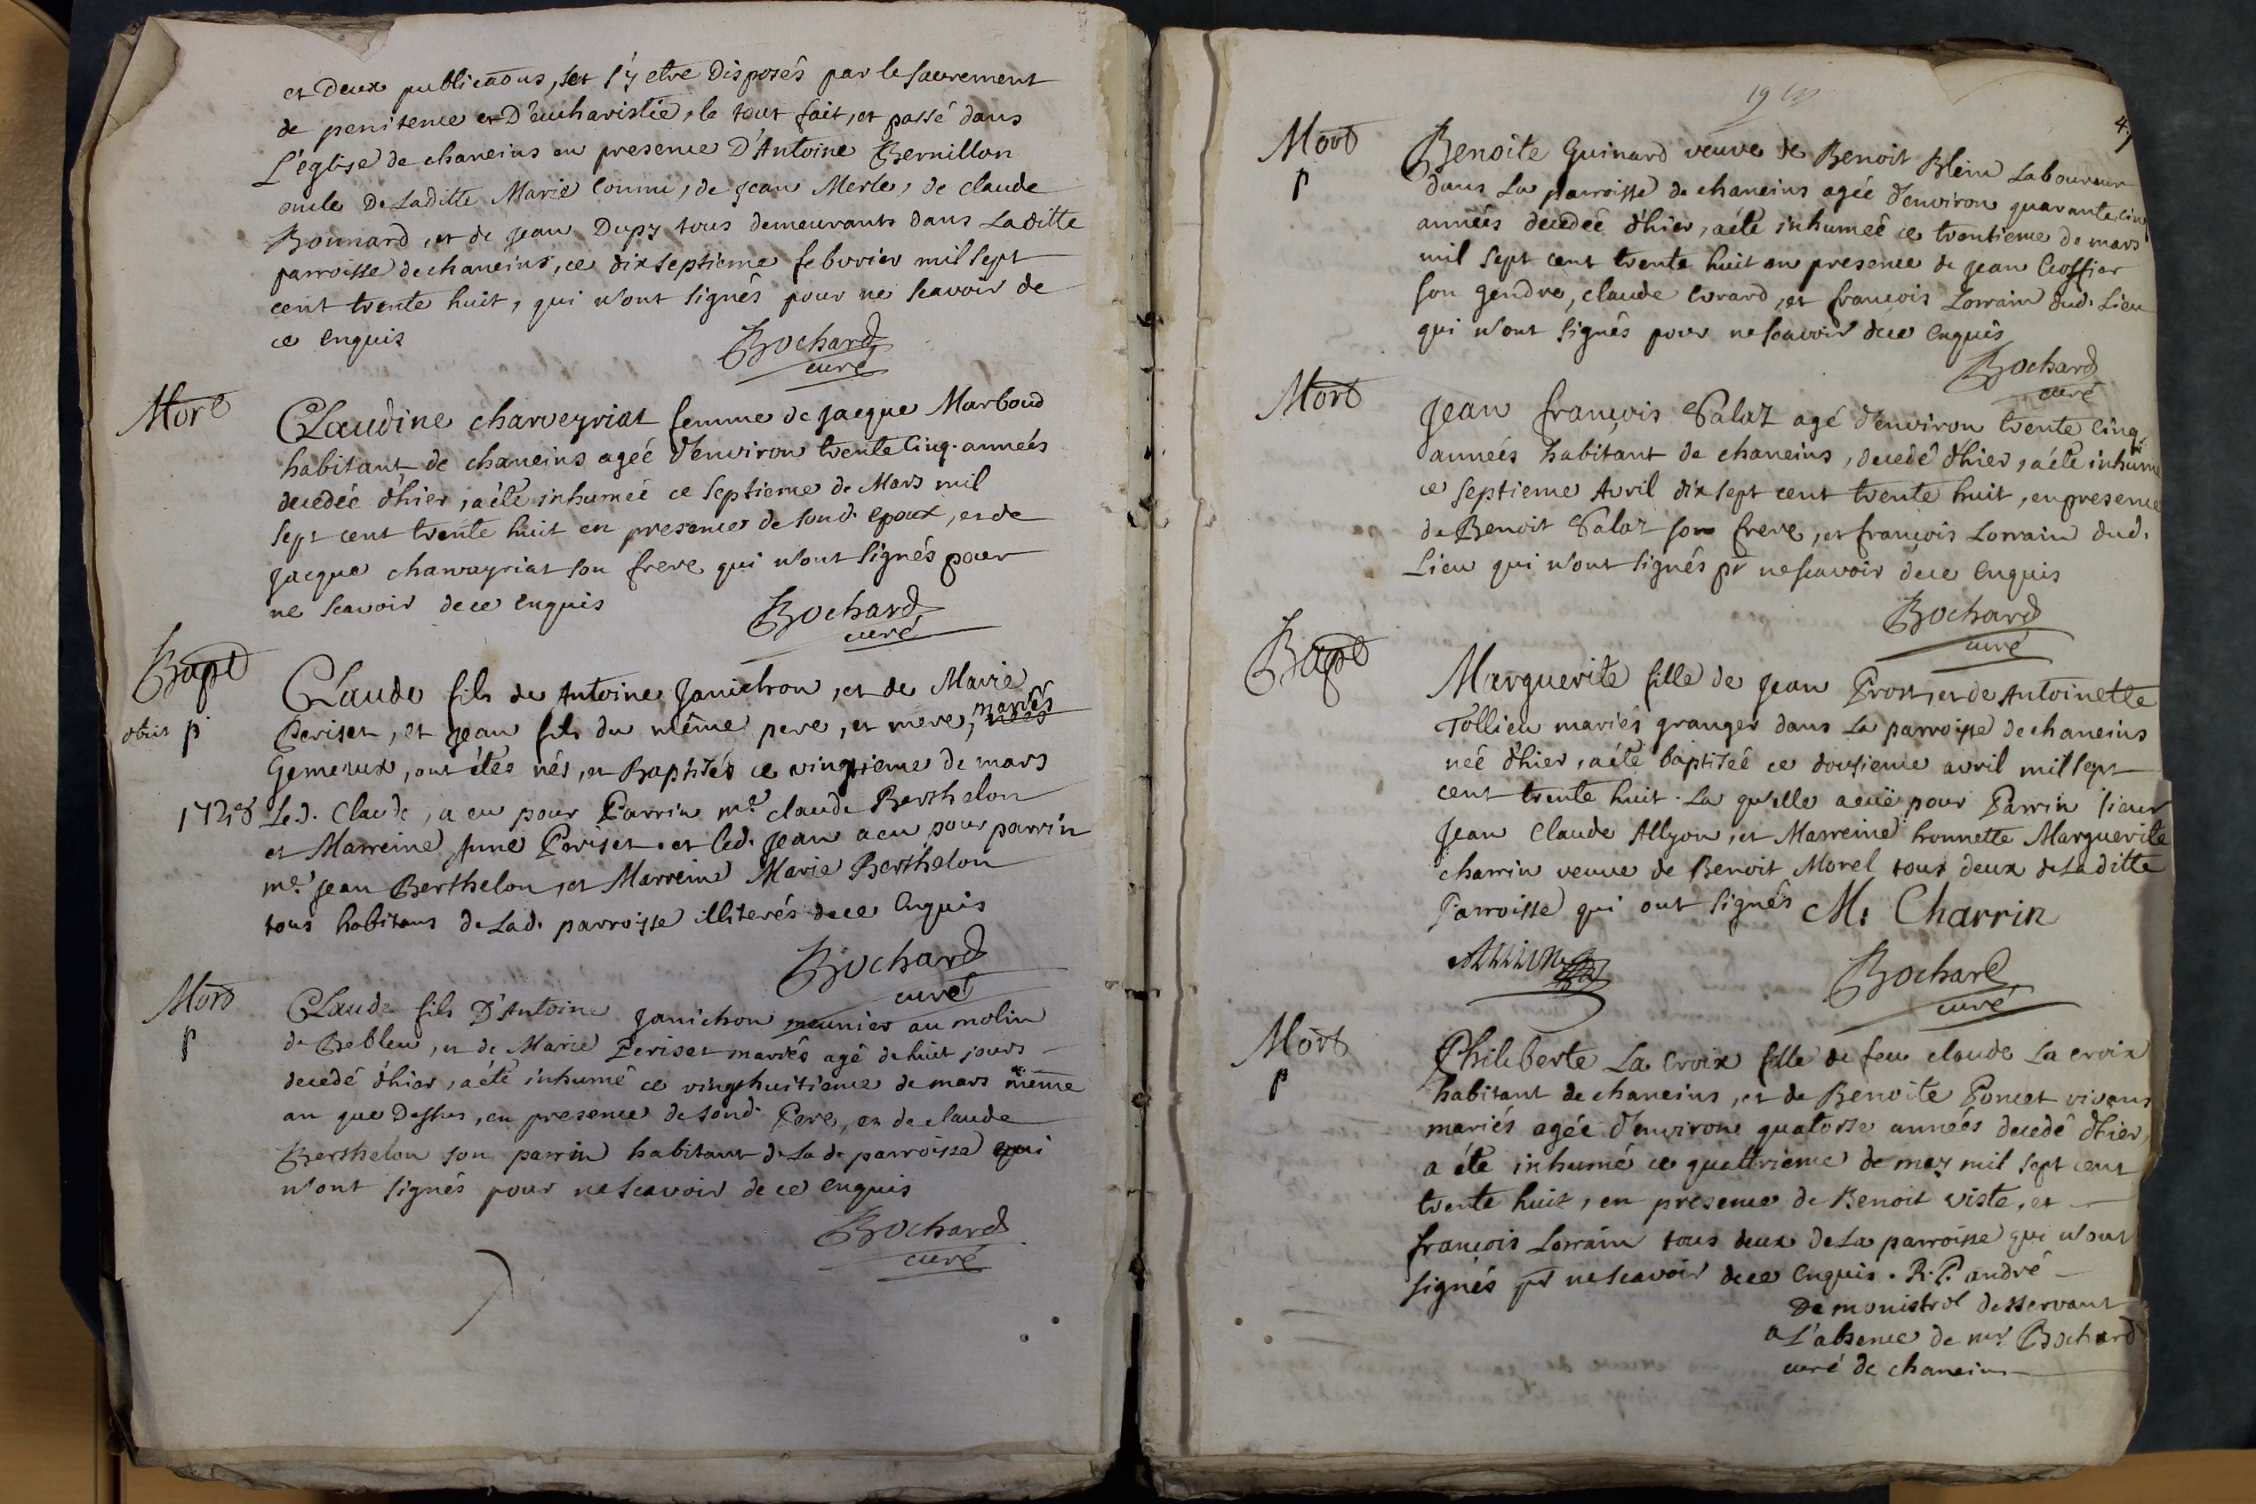 et deux publicaõns, set s'y etre disposés par le sacrement
de penitence et D'eucharistie, le tout fait, et passé dans
L'église de chaneins en presence D'Antoine Bernillon
oncle De Laditte Marie Commu, de Jean Merle, de claude
Bonnard, et de Jean Dupy tous demeurants dans Laditte
parroisse de chaneins, ce dix septieme febvrier mil sept
cent trente huit, qui n'ont signés pour ne scavoir de
ce enquis
Bochard
curé
Mort
Claudine charveyriat femme de Jacque Marboud
habitant de chaneins ageé d'environ trente cinq années
decedée d'hier, a été inhumeé ce septieme de Mars mil
sept cent trente huit en presence de sond. epoux, et de
Jacque charvayriat son frere qui n'ont signés pour
ne scavoir de ce enquis
Bochard
curé
Bapt
Claude fils de Antoine Janichon, et de Marie
obiit p
Periset, et Jean fils du même pere, et mere, mariés
Gemeaux, ont étés nés, et Baptisés ce vingtieme de mars
1738 Led. Claude, a eu pour Parrin me. claude Berthelon
et Marreine Periset. et led. Jean a eu pour parrin
me. Jean Berthelon, et Marreine Marie Berthelon
tous habitans de Lad. parroisse illiterés de ce enquis
Bochard
curé
Mort
p
Claude fils D'Antoine Janichon meunier au molin
de Bebleu, et de Marie Periset mariés agé de huit jours
decedé d'hier, a été inhumé ce vingt huitieme de mars même
an que Dessus, en presence de sond. Pere, et de claude
Berthelon son parrin habitant de La de parroisse qui
n'ont signés pour ne scavoir de ce enquis
Bochard
curé
19
Mort
p
Benoite Guinard veuve de Benoit Blein Laboureur
dans La parroisse de chaneins agée d'environ quarante cinq
années decedeé d'hier, a été inhumeé ce trentieme de mars
mil sept cent trente huit en presence de Jean Croffier
son gendre, claude Evrard, et francois Lorrain dud. Lieu
qui n'ont signés pour ne scavoir de ce enquis
Bochard
curé
Mort
Jean françois Palaz agé d'environ trente cinq
anneés habitant de chaneins, decedé d'hier, a été inhumé
ce septieme Avril dix sept cent trente huit, en presence
de Benoit Palaz son frere, et françois Lorrain dud.
Lieu qui n'ont signés pr ne scavoir de ce enquis
Bochard
curé
Bapt
Marguerite fille de Jean Prost et de Antoinette
Tollieu mariés granger dans La parroisse de chaneins
neé d'hier, a été baptiseé ce dousieme avril mil sept
cent trente huit. La qu'elle a euë pour Parrin sieur
Jean Claude Allyon, et Marreine honnette Marguerite
charrin veuve de Benoit Morel tous deux de Laditte
Parroisse qui ont signés M: Charrin
Bochard
curé
Mort
p
Philiberte La Croix fille de feu claude La croix
habitant de chaneins, et de Benoite Poncet vivans
mariés agée d'environ quatorse anneés decedé d'hier,
a été inhumé ce quattrieme de may mil sept cent
trente huit, en presence de Benoit viste, et
françois Lorrain tous deux de La parroisse qui n'ont
signés pr ne scavoir de ce enquis. R. P. andré
De monistrol desservant
a L'absence de mr. Bochard
curé de chaneins